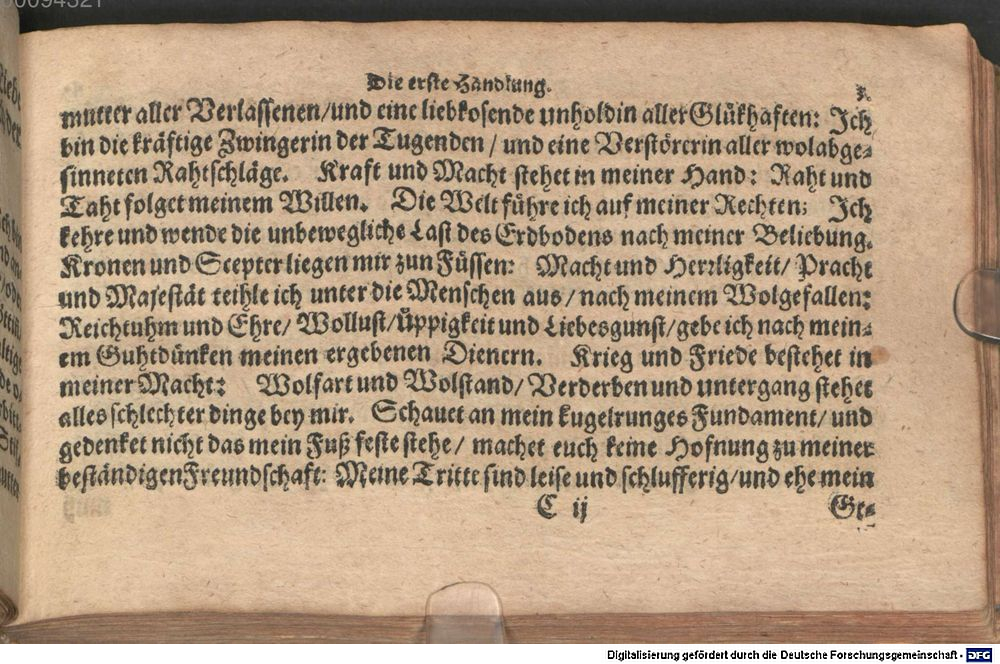 00094521
Die erste Handlung.
3.
mutter aller Verlassenen/und eine liebkosende unholdin aller Glükhaften: Ich
bin die kräftige Zwingerin der Tugenden / und eine Verstörerin aller wolabge-
sinneten Rahtschläge. Kraft und Macht stehet in meiner Hand: Raht und
Taht folget meinem Willen. Die Welt führe ich auf meiner Rechten: Ich
kehre und wende die unbewegliche Last des Erdbodens nach meiner Beliebung.
Kronen und Scepter liegen mir zun Füssen: Macht und Herrligkeit/ Pracht
und Majestät teihle ich unter die Menschen aus / nach meinem Wolgefallen:
Reichtuhm und Ehre/ Wollust/ üppigkeit und Liebesgunst/ gebe ich nach mein-
em Guhtdünken meinen ergebenen Dienern. Krieg und Friede bestehet in
meiner Macht: Wolfart und Wolstand/ Verderben und untergang stehet
alles schlechter dinge bey mir. Schauet an mein kugelrunges Fundament/ und
gedenket nicht das mein Fuß feste stehe/ machet euch keine Hofnung zu meiner
beständigen Freundschaft: Meine Tritte sind leise und schlufferig/und ehe mein
C ij
Ge-
Digitalisierung gefördert durch die Deutsche Forschungsgemeinschaft - DFG